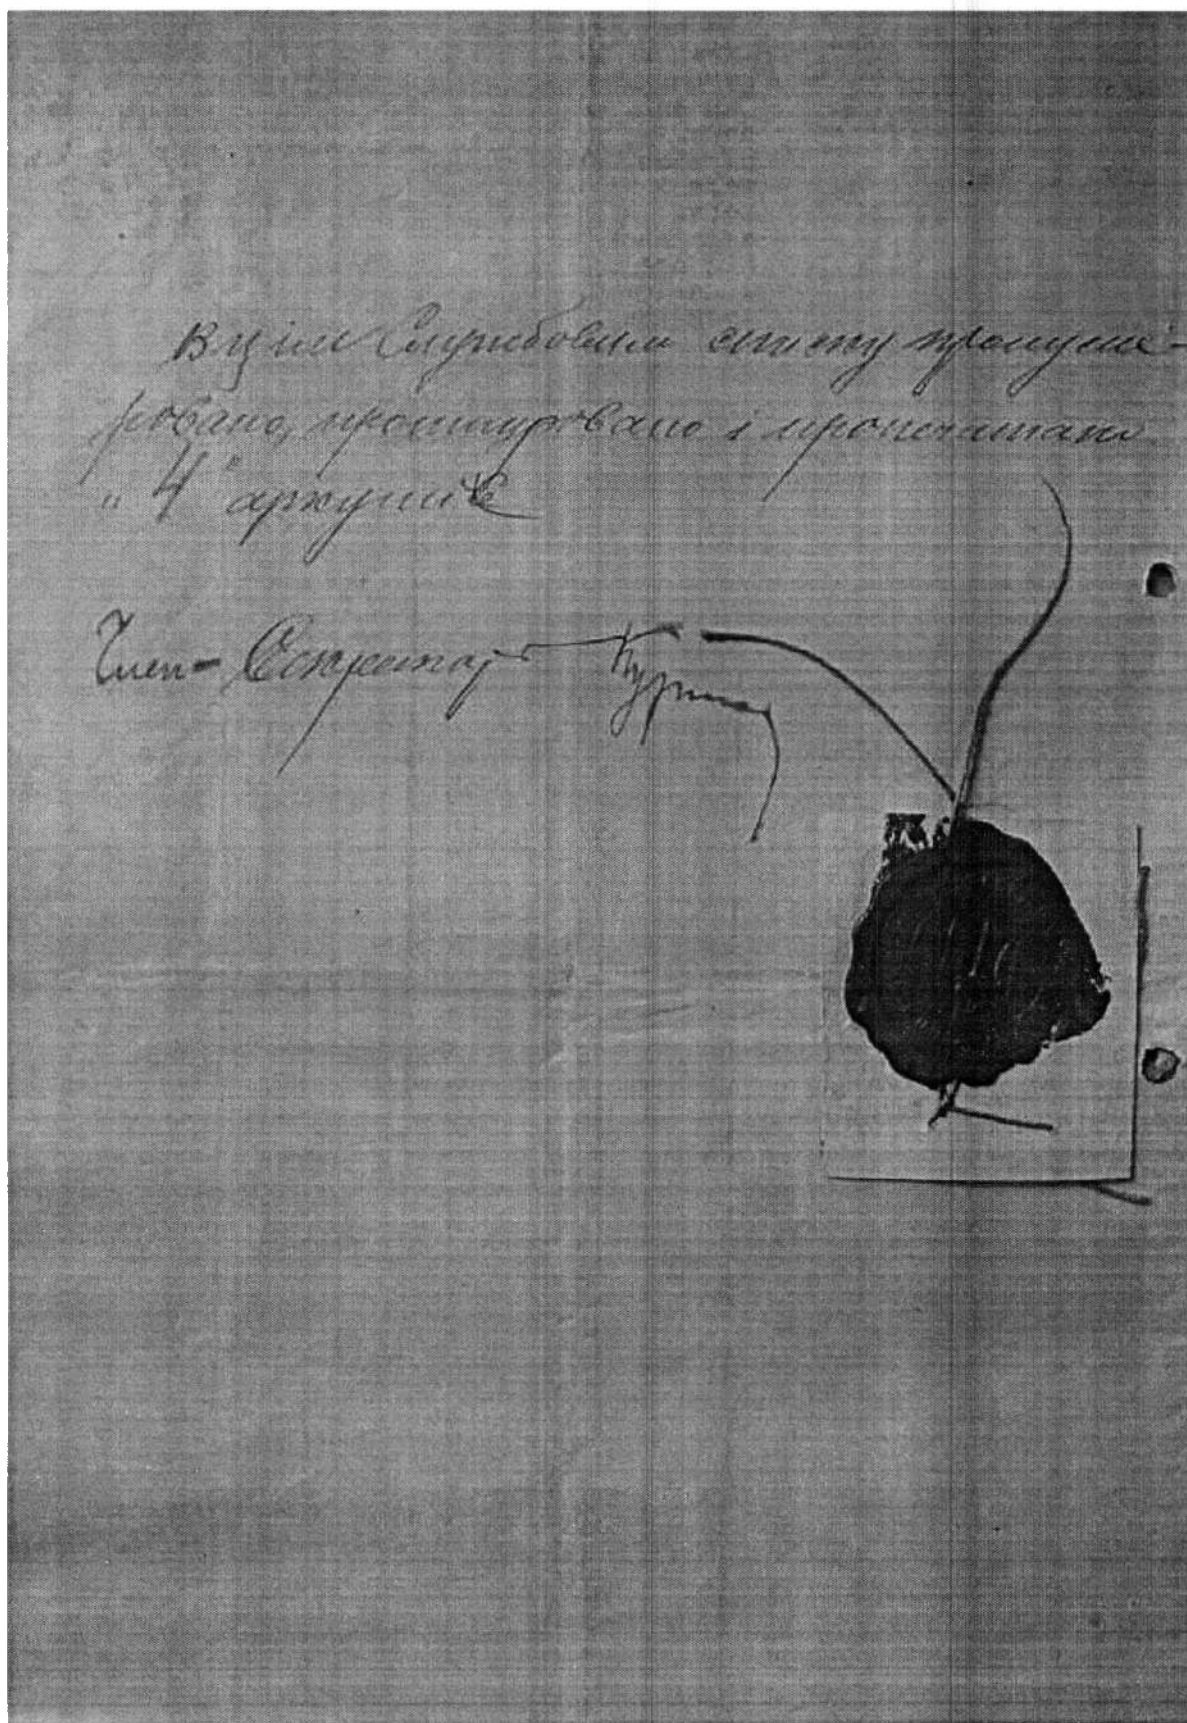 В цім Службовим списку пронуме-
ровано, прошнуровано і пропечатано
„4" аркушів
Член-Секретарь